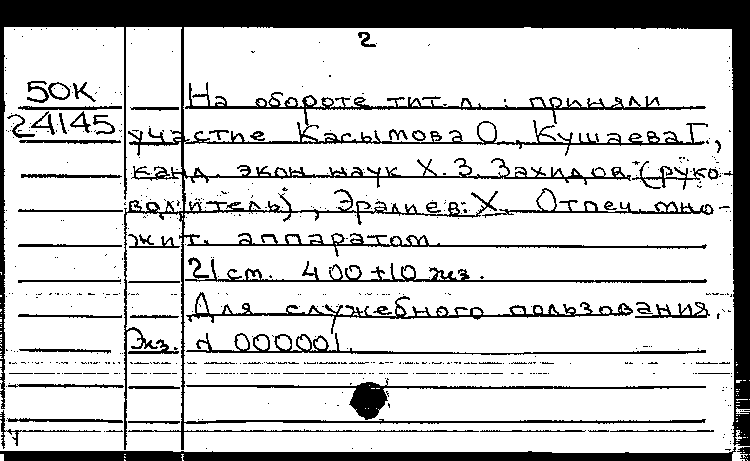 2
50К На обороте тит. л. : приняли
24145 участие Касымова О., Кушаева Г.,
канд. экон. наук Х. З. Захидов (руко-
водитель), Эралиев Х. Отпеч. мно-
жит. аппаратом.
21 см. 400+10 экз.
Для служебного пользования.
Экз. № 000001.